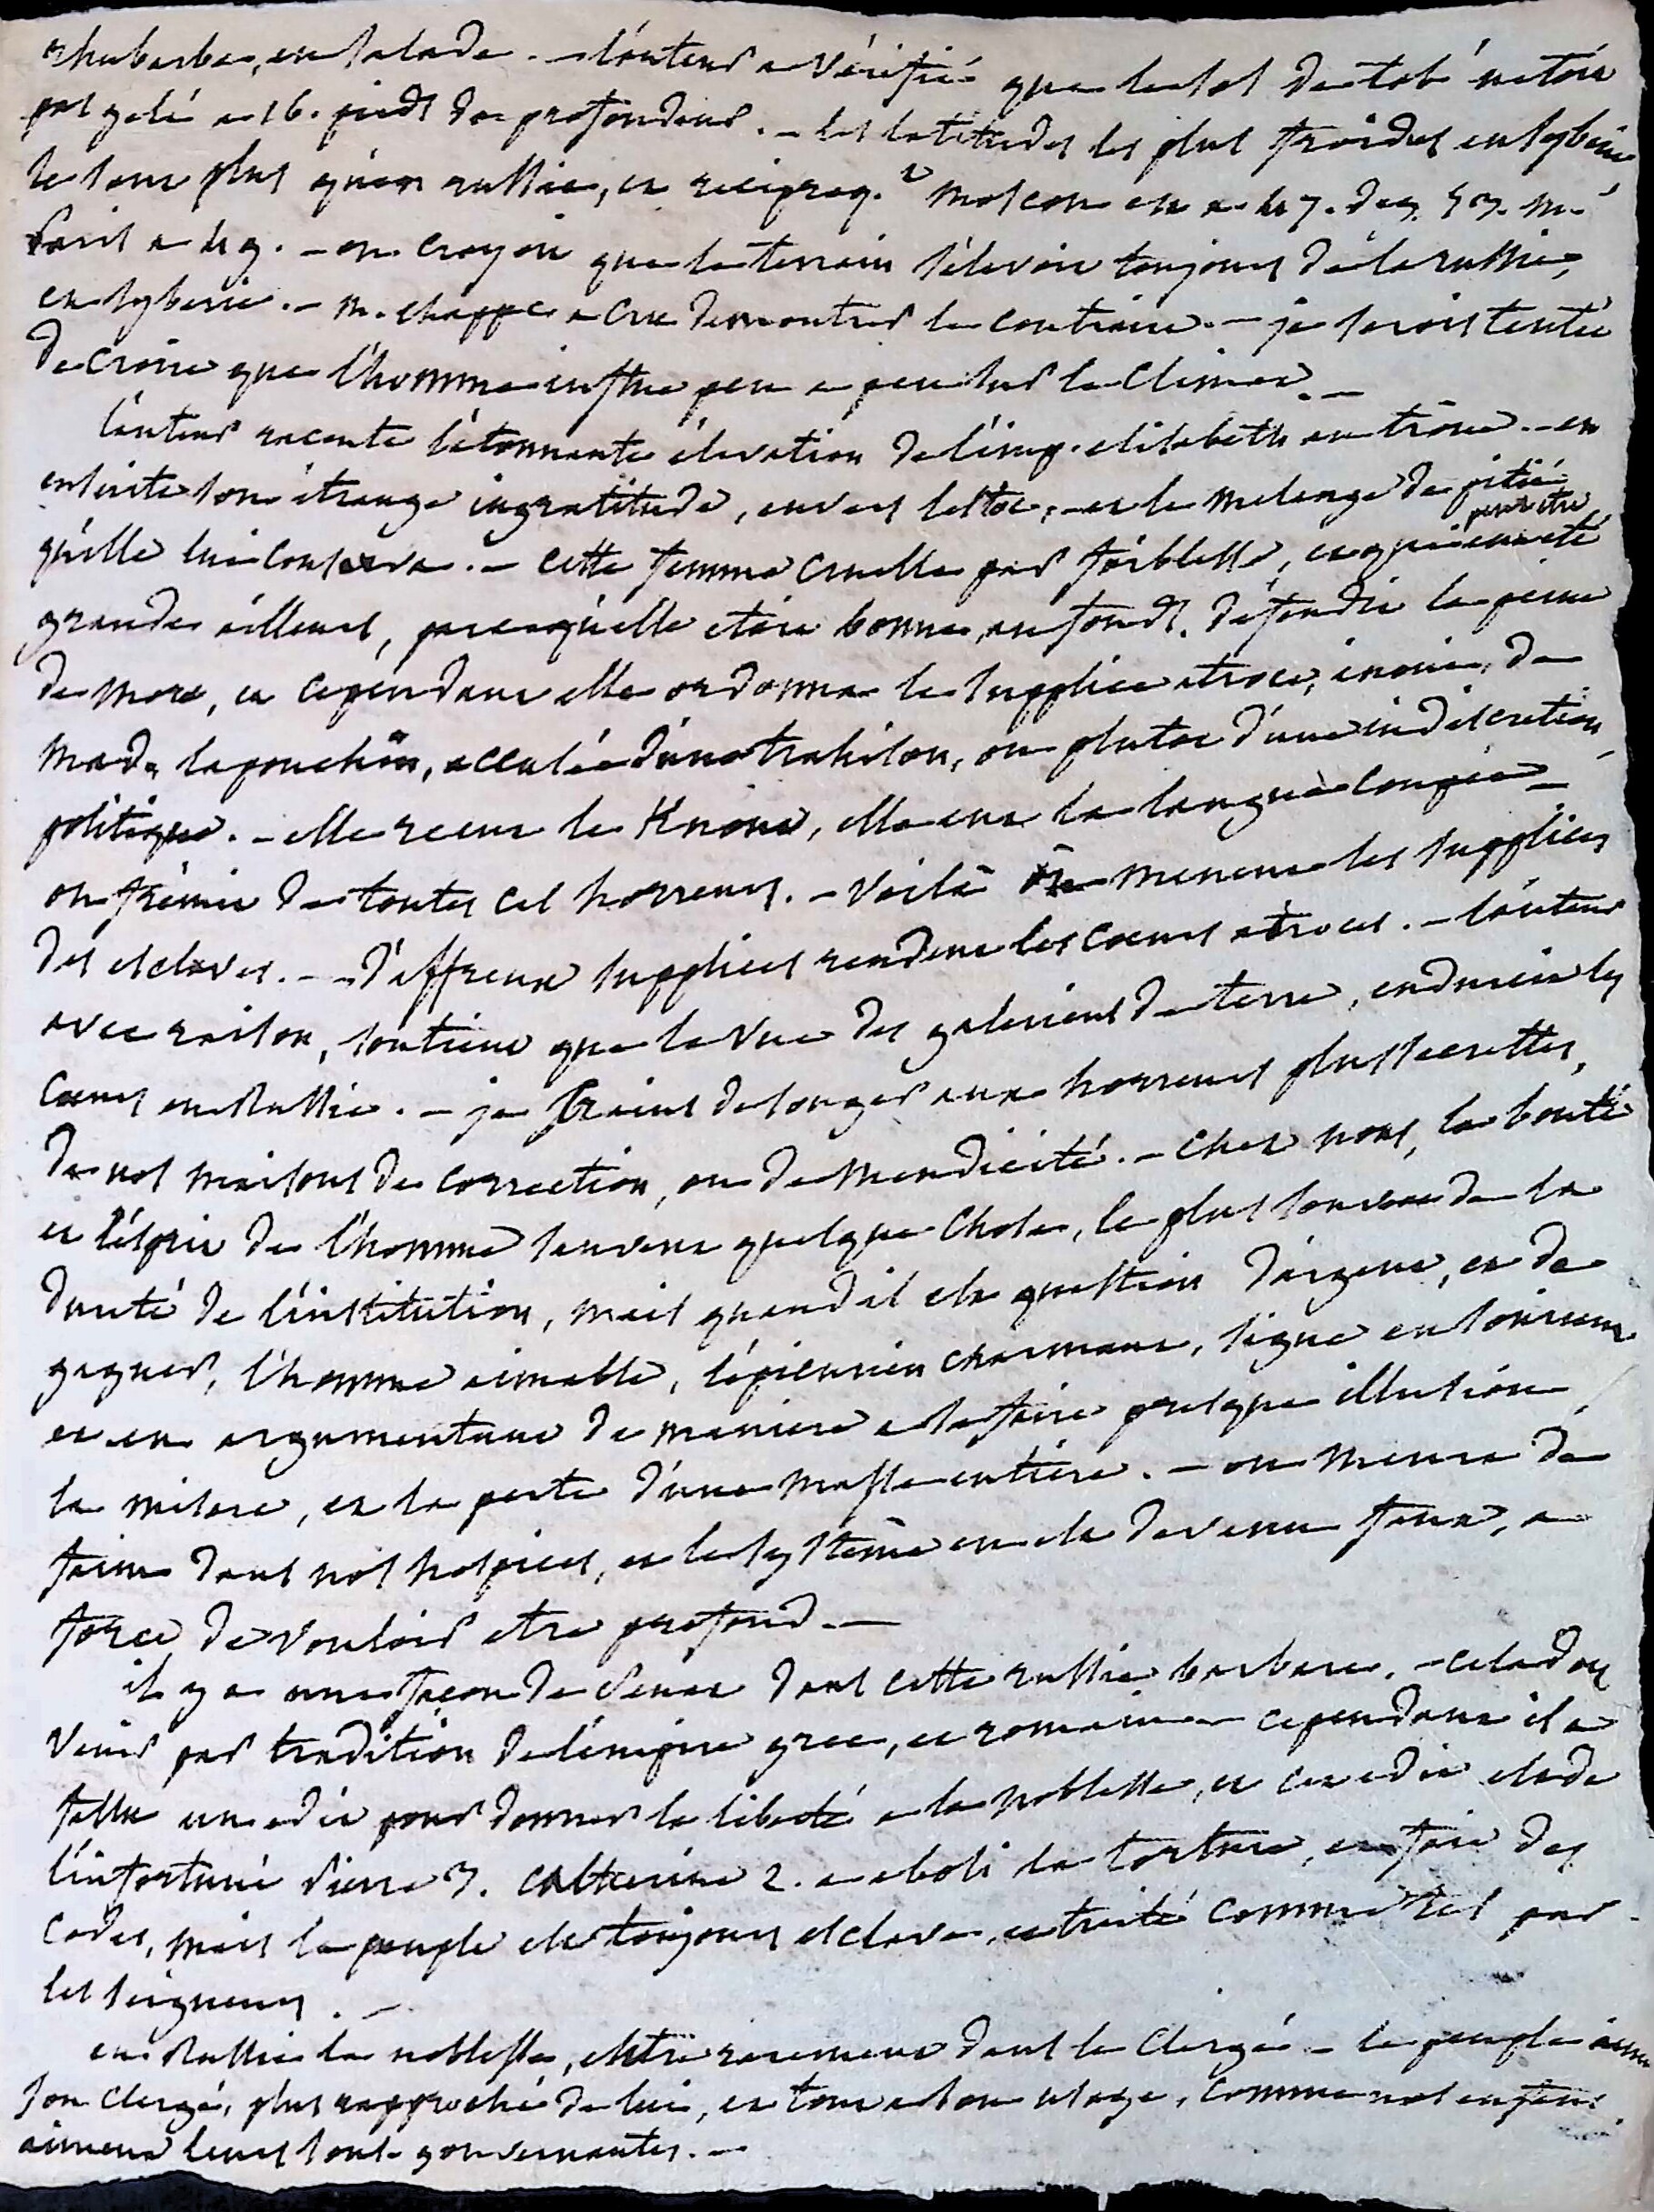 rhubarbe, en salade. — l'auteur a vérifié que le sol de tob. n'etoit
pas gelé a 16. pieds de profondeur. — les latitudes les plus froides en syberie
le sont plus qu'en russie, et reciproq.t moscou est a 47. deg. 53. m.
Paris a 49. — on croyoit que le terrain s'elevoit toujours de la russie,
en syberie. — m. chappe a cru demontrer le contraire. — je serois tentée
de croire que l'homme influe peu a peu sur le climat. —
l'auteur raconte l'étonnante élevation de l'imp. elisabeth au trône. — et
ensuite son étrange ingratitude, envers lestoc, — et le melange de pitié
qu'elle lui conserva. — cette femme cruelle par foiblesse, et qui eut été peut etre
grande ailleurs, parcequ'elle etoit bonne, au fonds, défendit la peine
de mort, et cependant elle ordonna le supplice atroce, inoui, de
mad.e lapouchin, accusée d'une trahison, ou plutot d'une indiscretion
politique. — elle reçut le Knout, elle eut la langue coupée —
on frémit de toutes ces horreurs. — voilà où menent les supplices
des esclaves. — d'affreux supplices rendent les cœurs atroces. — l'auteur
avec raison, soutient que la vue des galeriens de terre, endurcit les
cœurs en Russie. — je frémis de songer aux horreurs plus secrettes,
de nos maisons de correction, ou de mendicité. — chez nous, la bonté
et l'esprit de l'homme sauvent quelque chose, le plus souvent de la
dureté de l'institution, mais quand il est question d'argent, et de
gagner, l'homme aimable, l'épicurien charmant, signe en souriant
et en argumentant de maniere a se faire presque illusion,
la misere, et la perte d'une masse entière. — on meurt de
faim dans nos hospices, et le systême en est devenu faux, a
force de vouloir etre profond. —
il y a une façon de senat dans cette russie barbare. — cela doit
venir par tradition de l'empire grec, et romain — cependant il a
fallu un edit pour donner la liberté a la noblesse, et cet edit est de
l'infortuné Pierre 3. catherine 2. a aboli la torture, et fait des
codes, mais le peuple est toujours esclave, et traité comme tel par
les seigneurs. —
en Russie la noblesse, entre rarement dans le clergé — le peuple aime
son clergé, plus rapproché de lui, et tout a son usage, comme nos enfans
aiment leurs sous-gouvernantes. —